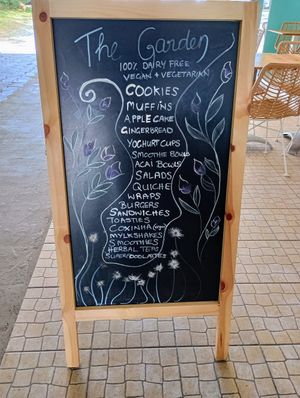 The Garden
100% DAIRY FREE
VEGAN + VEGETARIAN
COOKIES
MUFFINS
APPLE CAKE
GINGERBREAD
YOGHURT CUPS
SMOOTHIE BOWLS
ACAI BOWLS
SALADS
QUICHE
WRAPS
BURGERS
SANDWICHES
TOASTIES
COXINHA
MYLKSHAKES
SMOOTHIES
HERBAL TEAS
SUPERFOOD LATTES